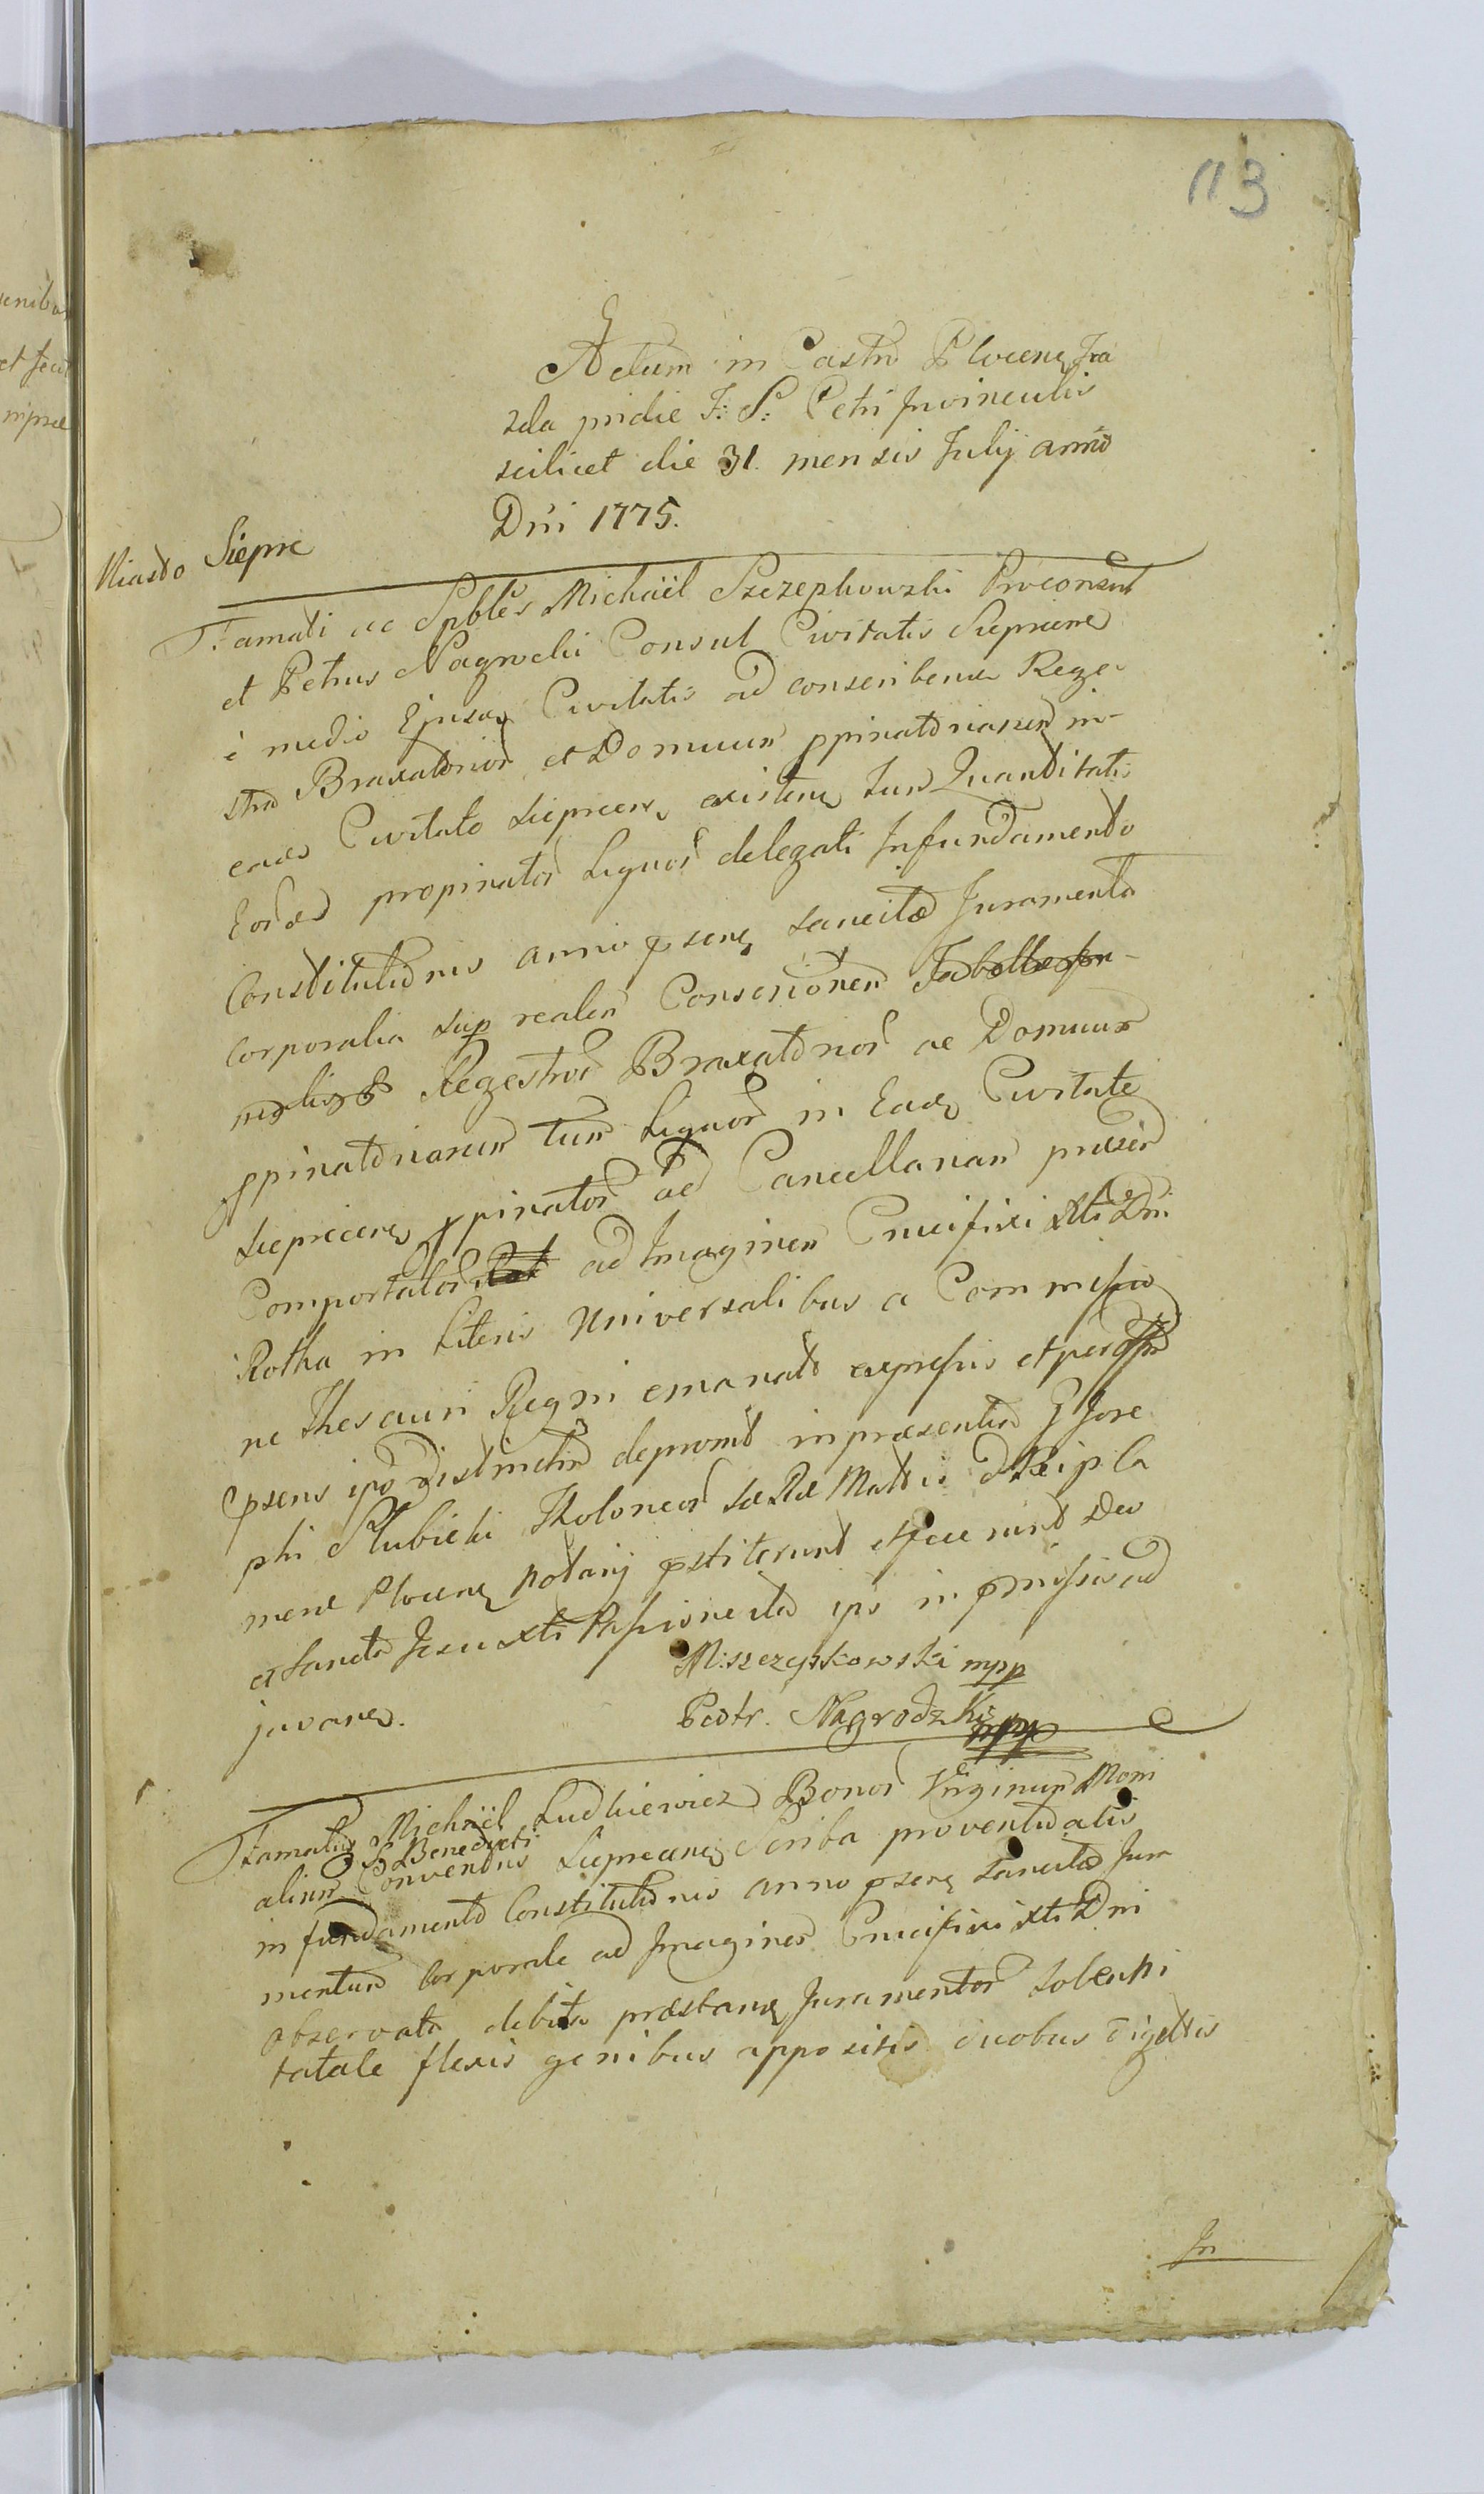 113
Actum in Castro Plocen Fra
2da pridie F: S: Petri Invinculis
scilicet die 31. mensis Julij anno
Dni 1775.
Miasto Sieprc
Famati ac Spbles Michaël Szczepkowski Proconsul
et Petrus Nagrocki Consul Civitatis Sieprcen
è medio Ejusdq Civitatis ad conscribenda Rege-
stra Braxatorior et Domuum ppinatoriarum in
eade Civitate Sieprcen existen tum Quantitatis
Eorde propinator Liquor delegati Infundamento
Constitutionis anno psen sancitæ Juramenta
corporalia sup realem Conscrionem
Regestror Braxatorior ac Domuum
ppinatoriarum tum Liquor in Eade Civitate
Sieprcen ppinator ad Cancellariam præsen
Comportator ad Imaginem Crucifixi Xti Dni
Rotha in Literis Universalibus a Commissio
ne Thesauri Regni emanat expressis et per
psens ips distinctim depromt inpræsentia G Jose
phi Slubicki Theloneor Sæ Ræ Mattis et Reipla
mene Plocen notarij pstiterunt et fecerunt Deo
et Sancta Jesu Xti Passione ita ips in pmissis ad
juvane.
M: szczepkowski mpp
Piotr. Nagrodzki mpp
Famatus Michaël Ludkiewicz Bonor Virginum Moni
S. Benedicti
alium Conventus Sieprcen Scriba proventualis
in fundamento Constitutionis anno psen sancitæ Jura
mentum corporale ad Imaginem Crucifixi Xti Dni
observata debita præstan Juramentor solenni
tatale flexis genibus appositis duobus digittis
In